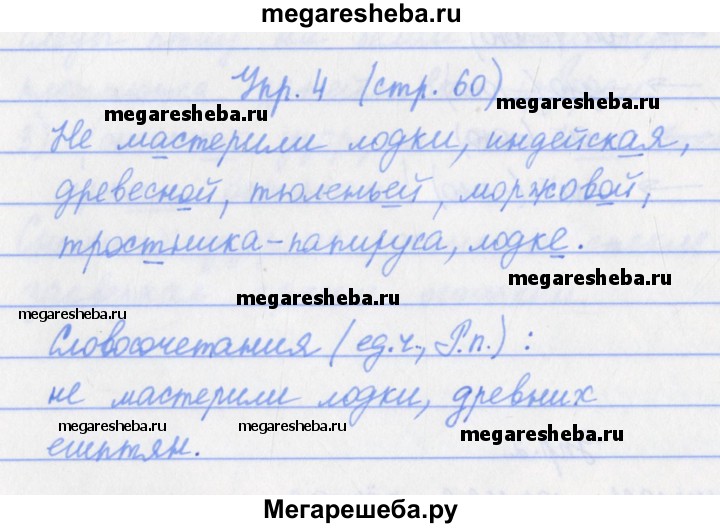 megaresheba.ru
Упр. 4 (стр. 60)
megaresheba.ru
megaresheba.ru
Не мастерили лодки, индейская,
древесной, тюленьей, моржовой,
тростника-папируса, лодке.
megaresheba.ru
megaresheba.ru
megaresheba.ru
Словосочетания (ед.ч., Р.п.):
не мастерили лодки, древних
megaresheba.ru
megaresheba.ru
megaresheba.ru
египтян.
Мегарешеба.ру